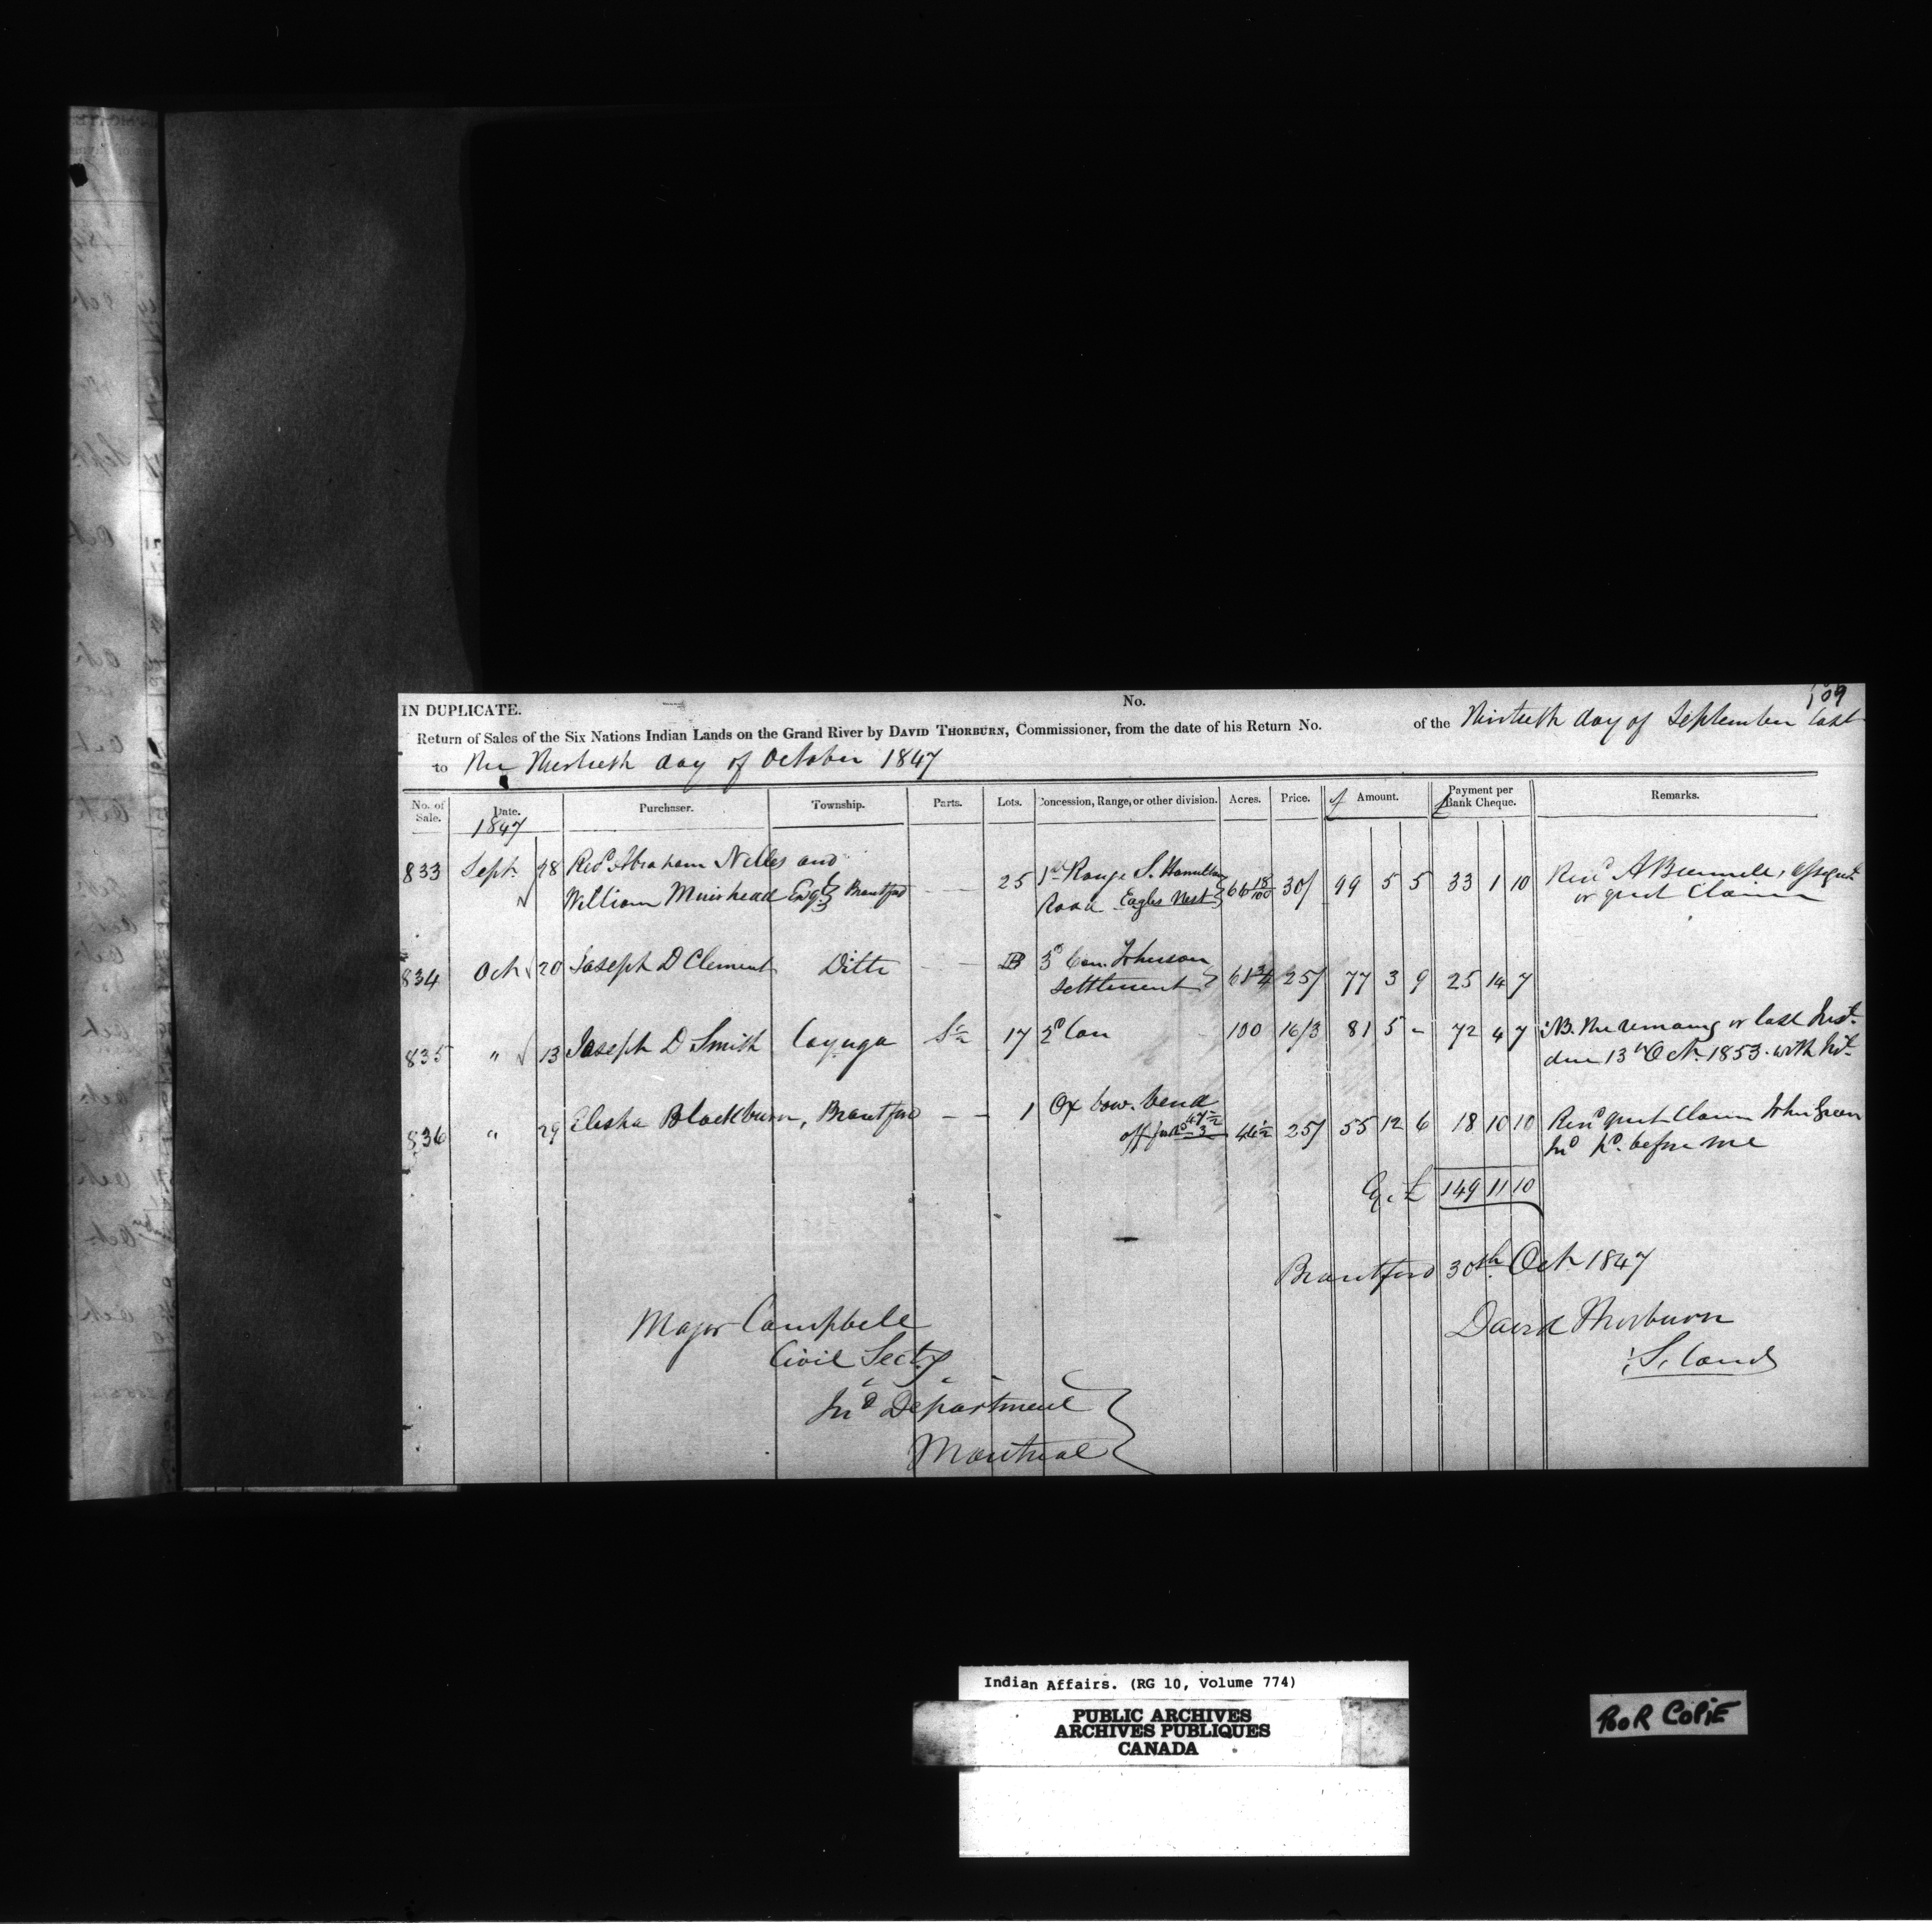 109
IN DUPLICATE.
No.
Return of Sales of the Six Nations Indian Lands on the Grand River by DAVID THORBURN, Commissioner, from the date of his Return No. of the Thirtieth day of September last
to the Thirtieth day of October 1847
No. of Sale. Date. Purchaser. Township. Parts. Lots. Concession, Range, or other division. Acres. Price. £ Amount. £ Payment per Bank Cheque. Remarks.
1847
833 Sept. 28 Revd Abraham Nelles and
William Muirhead Esqr Brantford — — 25 1st Range S. Hamilton Road Eagles Nest 66 18/100 30/ 99 5 5 33 1 10 Recd A Bunnell,
or quit Claim
834 Oct 20 Joseph D Clement Ditto — — B 3d Con. Johnson
Settlement 61 3/4 25/ 77 3 9 25 14 7
835 " 13 Joseph D Smith Cayuga S ½ 17 2d Con 100 16/3 81 5 - 72 4 7 NB. The remaing or last Inst.
due 13th Oct. 1853. with Int
836 " 29 Elisha Blackburn, Brantford — — 1 Ox bow. bend
44½ 25/ 55 12 6 18 10 10 Recd quit Claim John Green
Ind pd. before me
£ 149 11 10
Brantford 30th Oct 1847
Major Campbell
Civil Secty
Ind Department
Montreal
David Thorburn
Indian Affairs. (RG 10, Volume 774)
PUBLIC ARCHIVES
ARCHIVES PUBLIQUES
CANADA
POOR COPIE